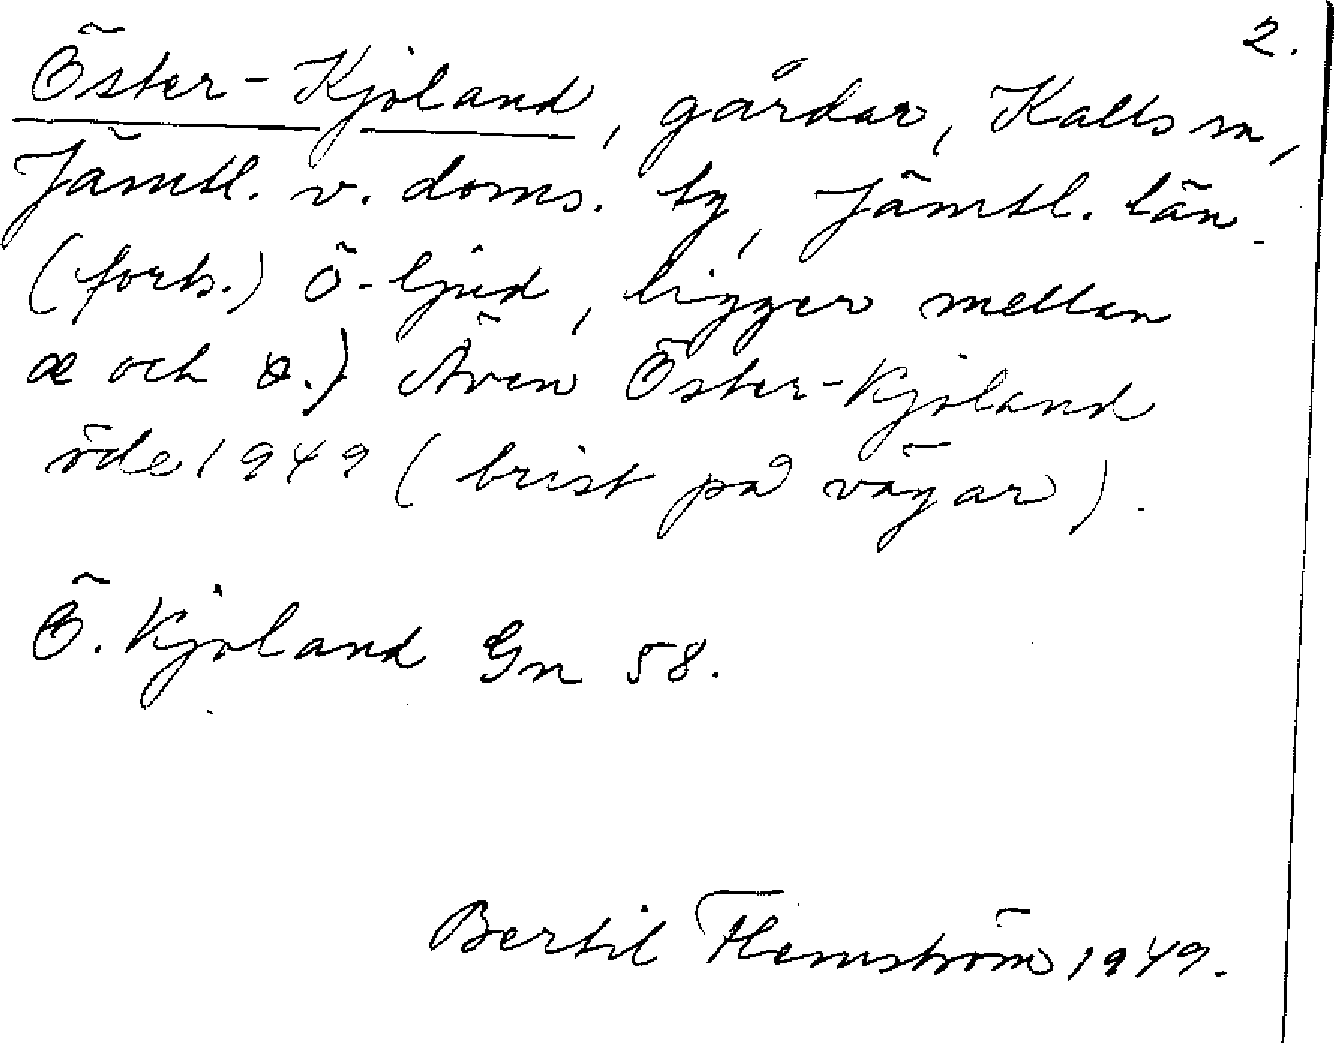 2.
Öster-Kjoland, gårdar, Kalls sn,
Jämtl. v. doms. tg, Jämtl. län.
(forts.) ö-ljud, ligger mellan
æ och ø.) Även Öster-Kjoland
öde 1949 (brist på vägar).
Ö. Kjoland Gn 58.
Bertil Flemström 1949.